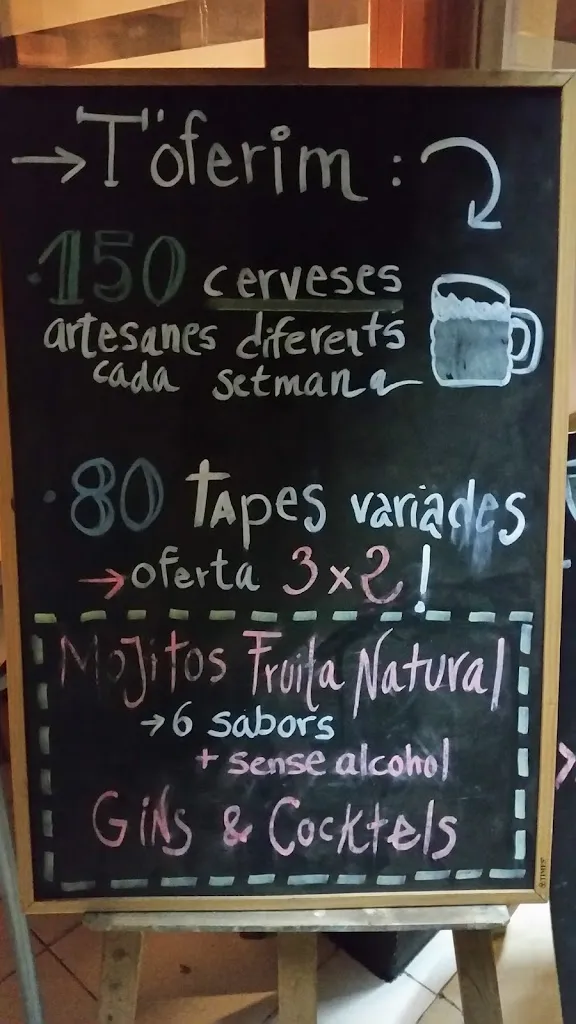 → T'oferim :
· 150 cerveses
artesanes diferents
cada setmana
· 80 Tapes variades
→ oferta 3x2!
Mojitos Fruita Natural
→ 6 sabors
+ sense alcohol
Gins & Cocktels